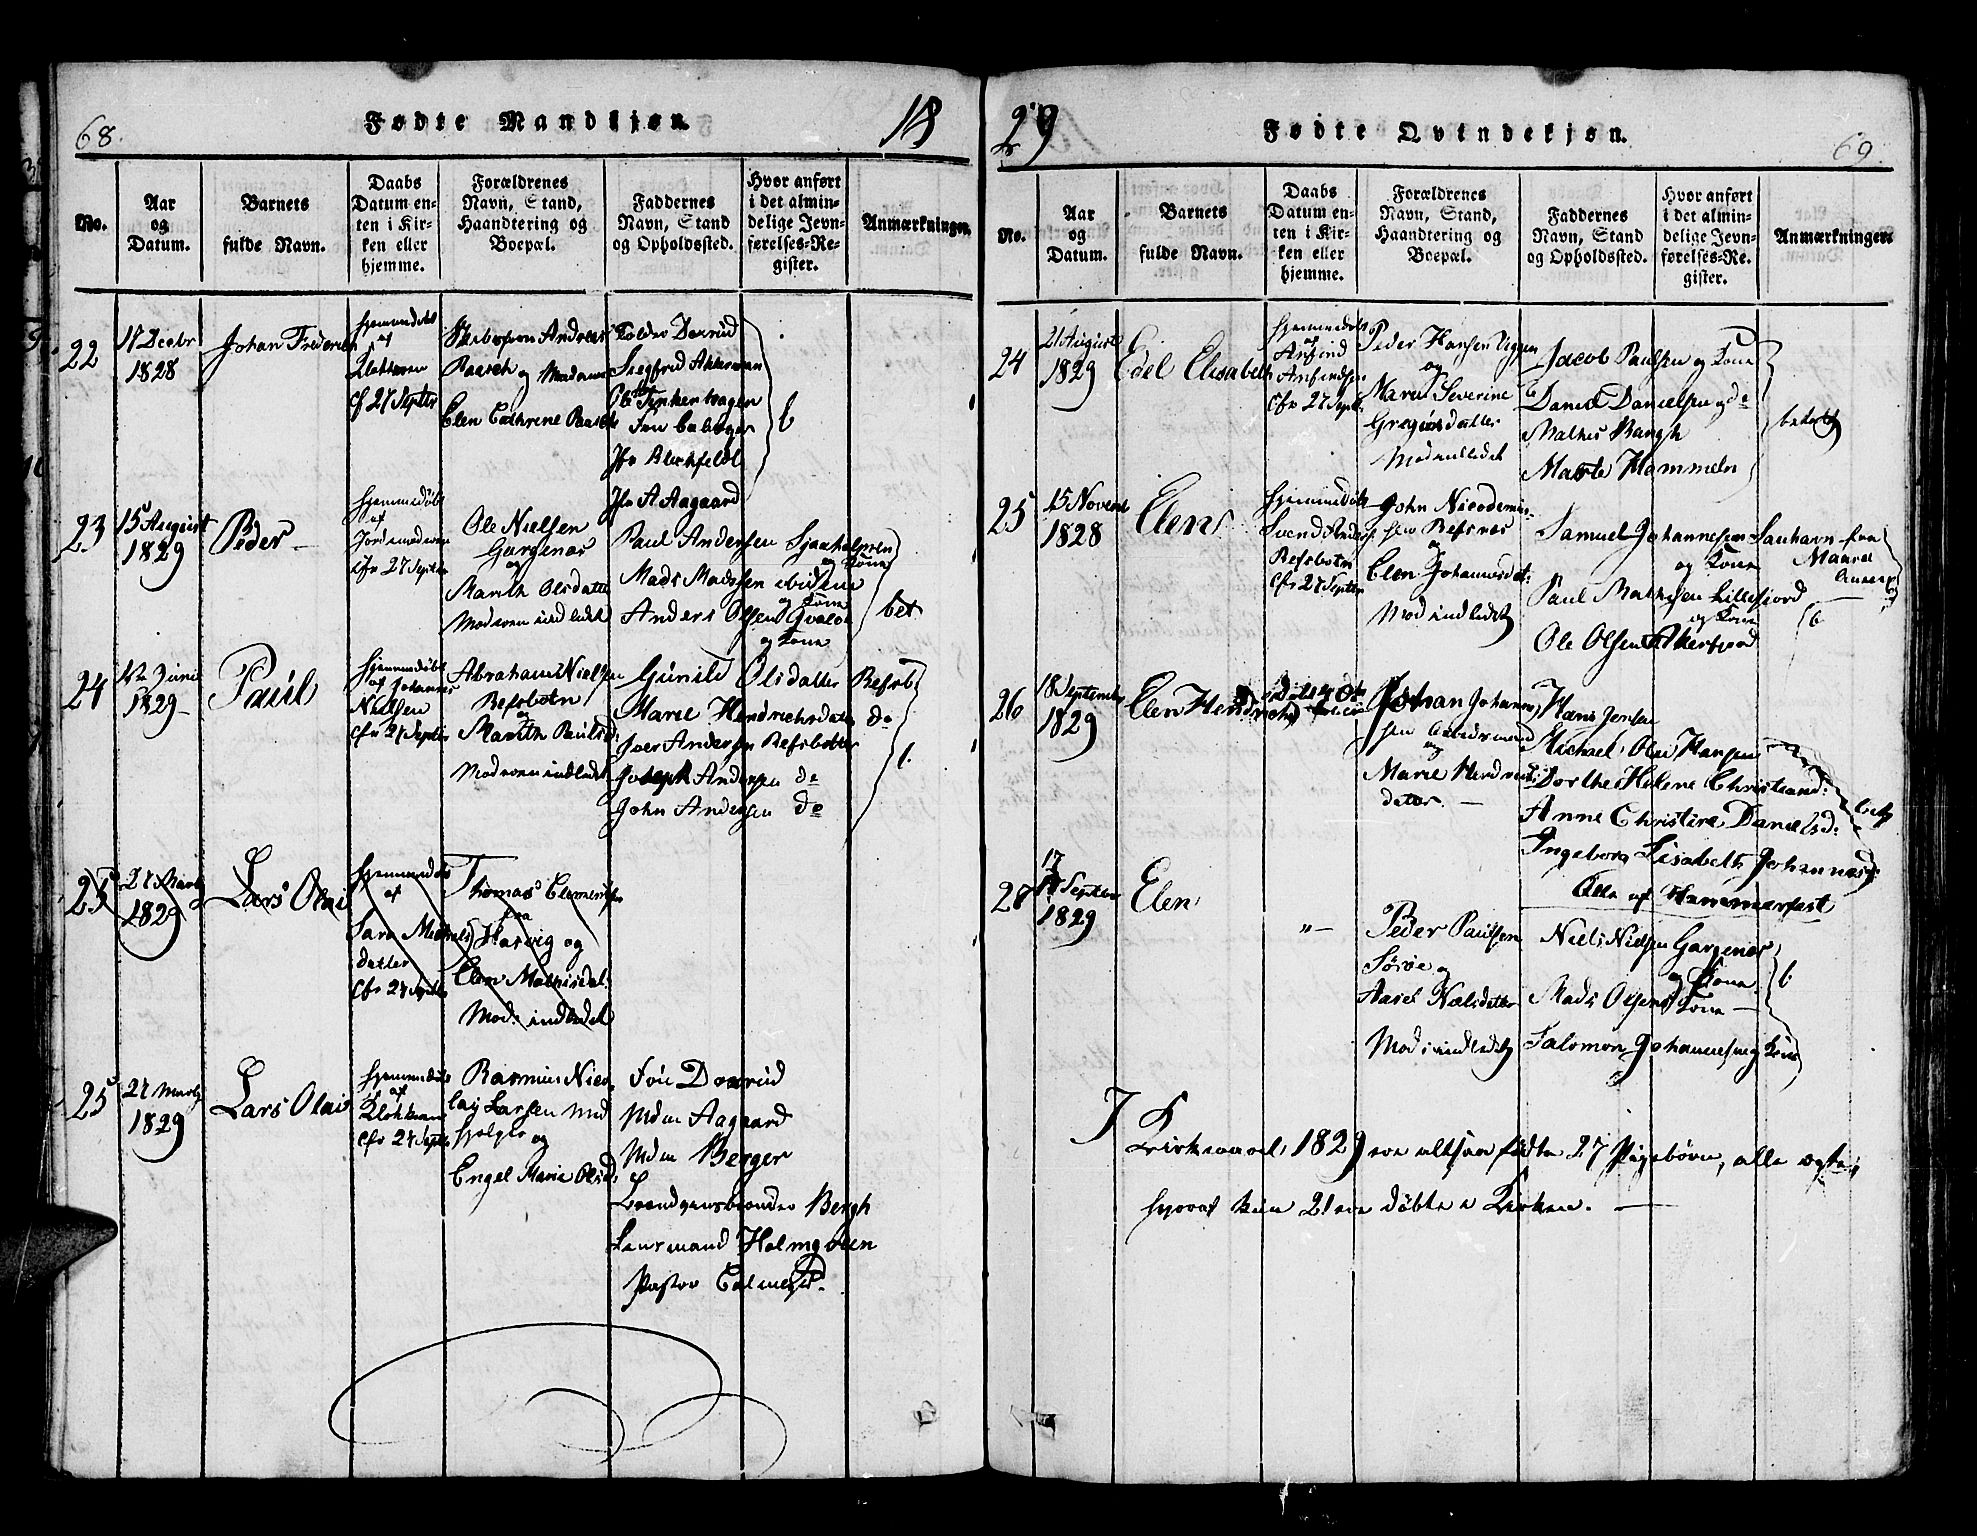 68.
Fødte Mandkjøn.
18
No.
Aar
og
Datum.
Barnets
fulde Navn.
Daabs
Datum en-
ten i Kir-
ken eller
hjemme.
Forældrenes
Navn, Stand,
Haandtering og
Boepæl.
Faddernes
Navn, Stand
og Opholdssted.
Hvor anført
i det almin-
delige Jevn-
førelses-Re-
gister.
Anmærkninger.
22
17 Decbr
1828
Johan Frederik
hjemmedøbt
af
Klokkeren
cf 27 Septbr
Andreas
Raasch og Madame
Elen Cathrine Raasch
Tolder Doxrud
Siegfrid Akkerman
Ole Finkenhagen
Jfr Blechfeldt
Jfr A Aagaard
b
23
15 August
1829
Peder
hjemmedøbt
af
Jordemoderen
cfr 27 Septbr
Ole Nielsen
Gargenæs
og
Marith Olsdatter
Moderen indledet
Paul Andersen
og Kone
Mads Madssen
og Kone
Anders Olsen
og Kone
bet
24
12 Junii
1829
Paul
hjemmedøbt
af Johannes
Nielsen
cfr 27 Septbr
Abraham Nielsen
Refsbotn
og
Marith Paulsd:
Moderen indledet
Gunild Olsdatter Refsb
Marie Hendrichsdatter do
Iver Andersen Refsbotten
Joseph Andersen do
John Andersen do
b.
25
27 Martz
1829
Lars Olai
hjemmedøbt
af
Sara Michels
datter
cfr 27 Septbr
Thomas Clemetsen
fra
Hasvig og
Elen Mathisdat:
Mod: indledet
25
27 Martz
1829
Lars Olai
hjemmedøbt
af
Klokkeren
cfr 27 Septbr
Rasmus Nico
laj Larsen
og
Engel Marie Olsd:
Fru Doxrud
Mdm Aagaard
Mdm Berger
Bergh
Lensmand Holmgreen
Pastor
29
Fødte Qvindekjøn.
69.
No.
Aar
og
Datum.
Barnets
fulde Navn.
Daabs
Datum en-
ten i Kir-
ken eller
hjemme.
Forældrenes
Navn, Stand,
Haandtering og
Boepæl.
Faddernes
Navn, Stand
og Opholdssted.
Hvor anført
i det almin-
delige Jevn-
førelses-Re-
gister.
Anmærkninger.
24
21 August
1829
Edel Elisabeth
hjemmedøbt
af
Anfind
Anfindsen
cfr 27 Septbr
Peder Hansen
og
Maren Severine
Gregersdatter
Mod indledet
Jacob Paulsen og Kone
Daniel Danielsen og do
Mathis Bangh
Marte Hammeln
betalt
25
15 Novem
1828
Elen
hjemmedøbt
af
Svend Anders
Refsbotn
cfr 27 Septbr
John Nicodemis-
sen Refsnes
og
Elen Johannesdat:
Mod indledet
Samuel Johannesen
og Kone
Paul Mathisen Lillefjord
og Kone
Ole Olsen Akkerfjord
b
26
18 September
1829
Elen Hendricha
Johan Johanne
sen Arbeidsmand
og
Marie Hendrichs
datter.
Hans Jensen
Michael Olai Hansen
Dorthe Helene Christiand:
Anne Christine Danielsd:
Ingeborg Lisabeth Johannesd:
Alle af Hammerfest
bet
27
17
Septbr
1829
Elen
"–
Peder Paulsen
Sørøe og
Aaret Nielsdatter
Mod: indledet
Niels Nielsen Gargenæs
og Kone
Mads Olsen Kone
Salomon Johannesen og Kone
b
I
Kirkeaaret 1829 ere altsaa fødte 27 Pigebørn, alle ægte;
hvoraf kun 21 ere døbte i Kirken.